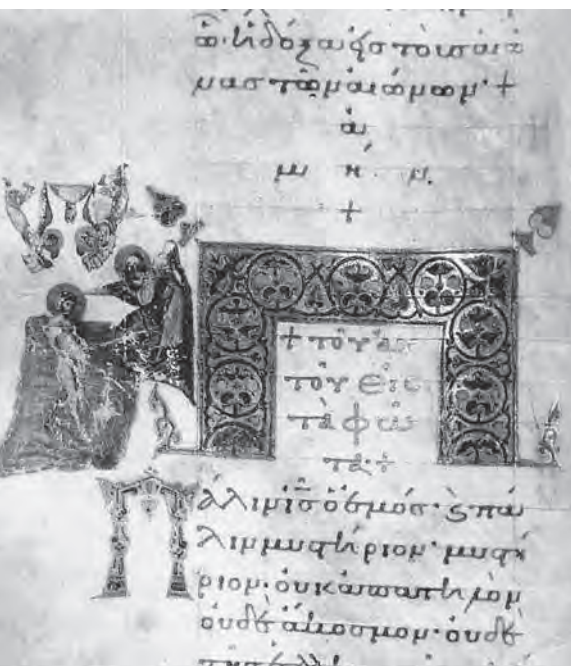 ῶ· ἡ δόξα εἰς τοὺς αἰῶ
νας τῶν αἰώνων· +
ἀ
μ ή ν.
+
+ τοῦ αὐ
τοῦ εἰς
τὰ φῶ
τα·+
Πάλιν ἰς ὁ ἐμός· ϗ πά
λιν μυστήριον· μυστή
ριον· οὐκ ἀπατηλὸν
οὐδὲ ἄκοσμον· οὐδὲ